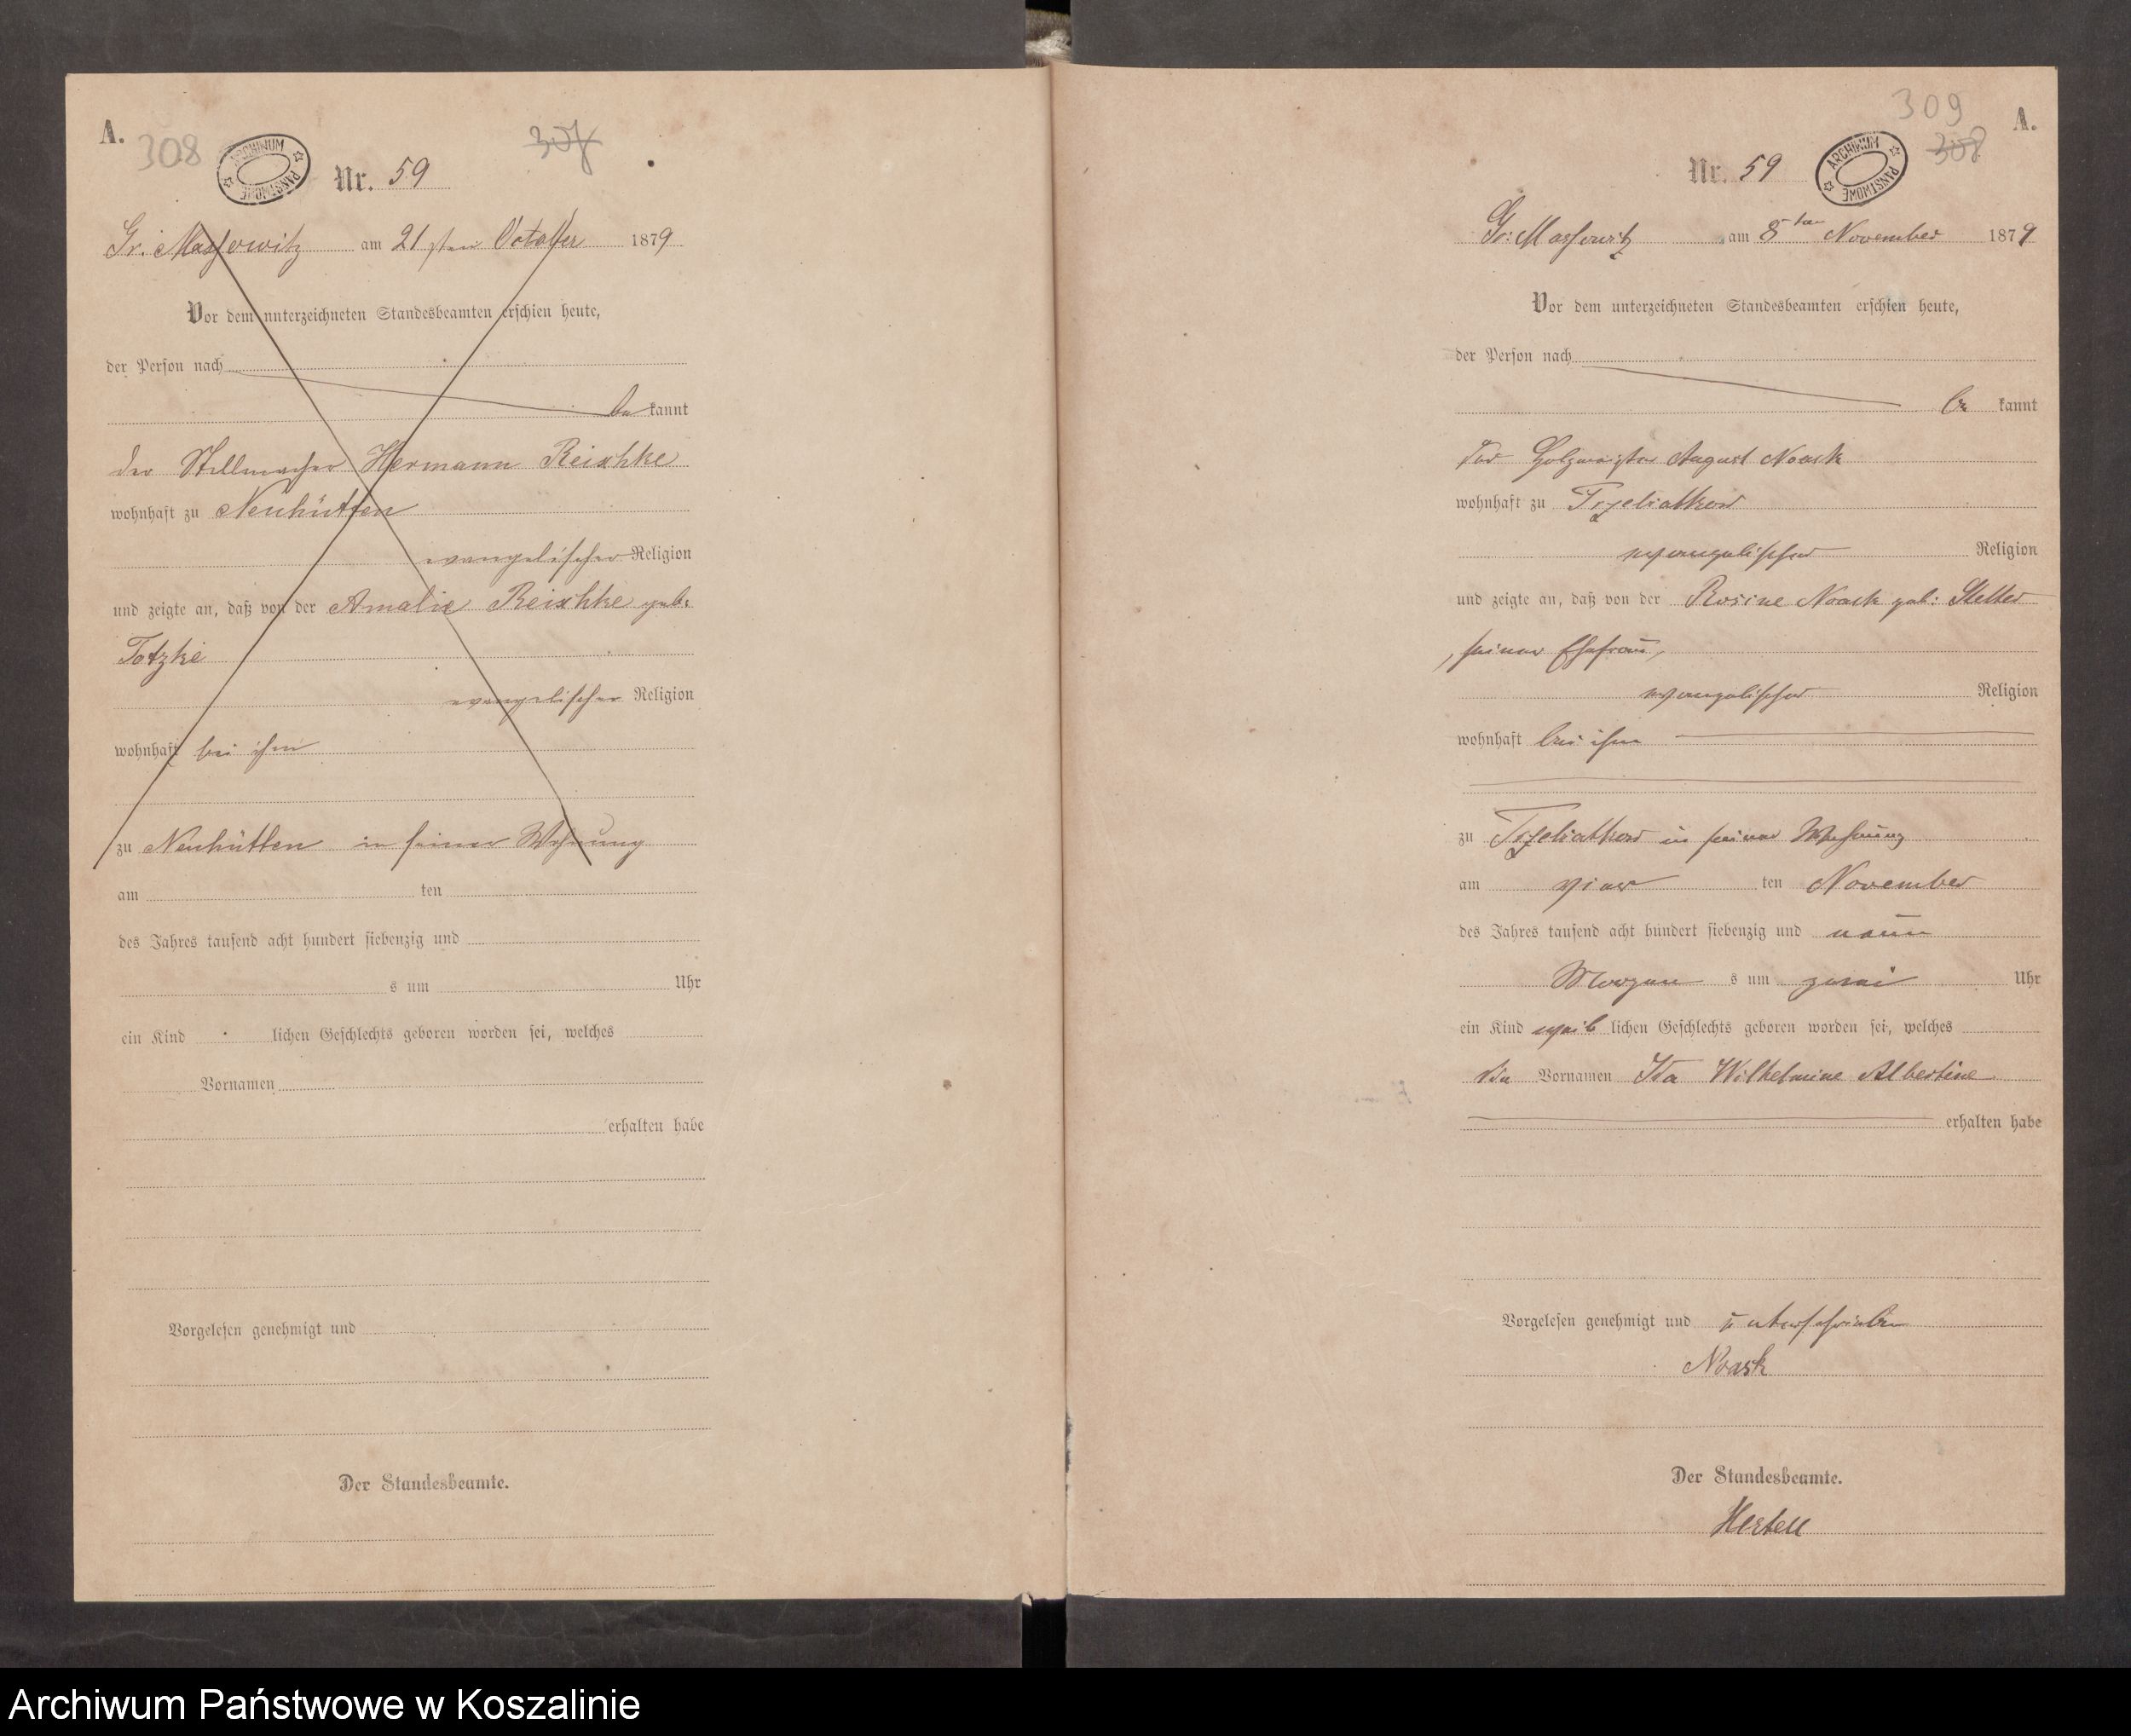 A.
308
ARCHIWUM PAŃSTWOWE
307
Nr. 59
Gr. Massowitz am 21 sten October 1879
Vor dem unterzeichneten Standesbeamten erschien heute,
der Person nach
be kannt
der Stellmacher Hermann Reischke
wohnhaft zu Neuhütten
evangelischer Religion
und zeigte an, daß von der Amalie Reischke geb.
Totzke
evangelischer Religion
wohnhaft bei ihm
zu Neuhütten in seiner Wohnung
am ten
des Jahres tausend acht hundert siebenzig und
s um Uhr
ein Kind lichen Geschlechts geboren worden sei, welches
Vornamen
erhalten habe
Vorgelesen genehmigt und
Der Standesbeamte.
309
A.
308
ARCHIWUM PAŃSTWOWE
Nr. 59
Gr: Massowitz am 8ten November 1879
Vor dem unterzeichneten Standesbeamten erschien heute,
der Person nach
be kannt
der August Noask
wohnhaft zu Trzebiatkow
evangelischer Religion
und zeigte an, daß von der Rosine Noask geb: Stetter
, seiner Ehefrau,
evangelischer Religion
wohnhaft bei ihm
zu Trzebiatkow in seiner Wohnung
am vier ten November
des Jahres tausend acht hundert siebenzig und neun
Morgen s um zwei Uhr
ein Kind weib lichen Geschlechts geboren worden sei, welches
die Vornamen Ida Wilhelmine Albertine
erhalten habe
Vorgelesen genehmigt und unterschrieben
Noask
Der Standesbeamte.
Hertell
Archiwum Państwowe w Koszalinie